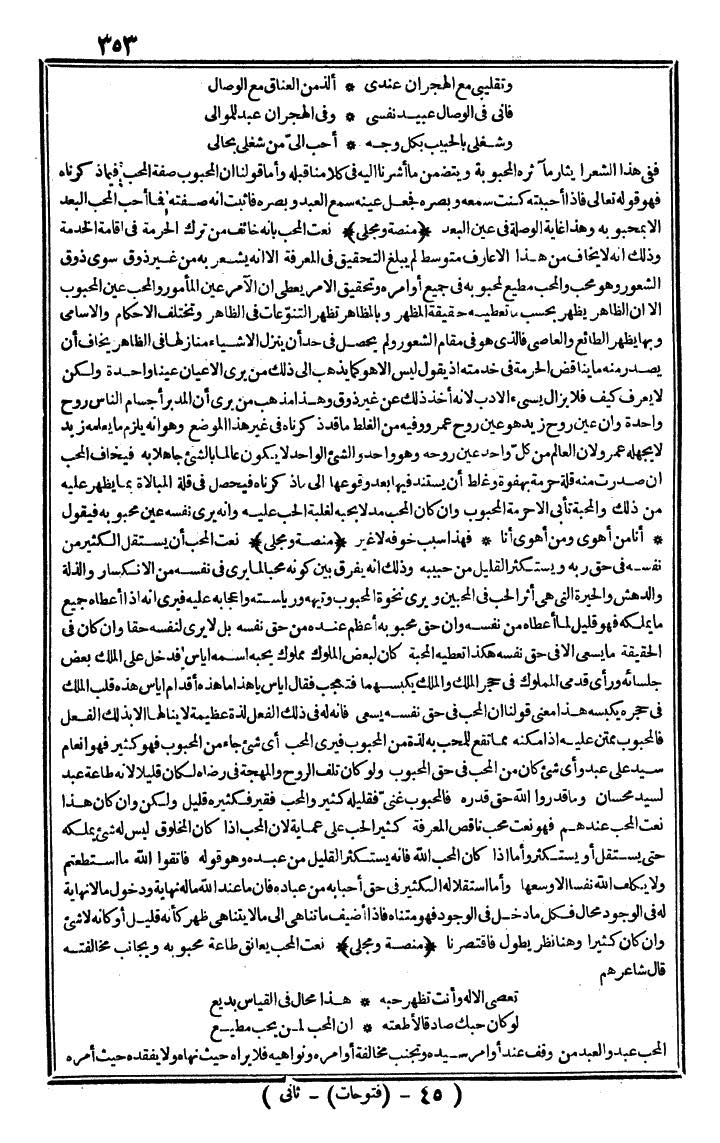 ٣٥٣
وتقليبي مع الهجران عندى * ألذ من العناق مع الوصال
فانى فى الوصال عبيد نفسى * وفى الهجران عبد للموالى
وشغلى بالحبيب بكل وجه * أحب الىّ من شغلى بحالى
ففى هذا الشعر ايثار ما آثره المحبوب ويتضمن ما أشرنا اليه فى كلامنا قبله وأما قولنا ان المحبوب صفة المحب فيما ذكرناه
فهو قوله تعالى فاذا أحببته كنت سمعه وبصره فجعل عينه سمع العبد وبصره فاثبت انه صفته فما أحب المحب البعد
الا بمحبوبه وهذا غاية الوصلة فى عين البعد ﴿منصة ومجلى﴾ نعت المحب بانه خائف من ترك الحرمة فى اقامة الخدمة
وذلك انه لا يخاف من هذا الا عارف متوسط لم يبلغ التحقيق فى المعرفة الا انه يشعر به من غير ذوق سوى ذوق
الشعور وهو محب والمحب مطيع لمحبوبه فى جميع أوامره وتحقيق الامر يعطى ان الآمر عين المأمور والمحب عين المحبوب
الا ان الظاهر يظهر بحسب ما تعطيه حقيقة المظهر وبالمظاهر تظهر التنوّعات فى الظاهر وتختلف الاحكام والاسامى
وبها يظهر الطائع والعاصى فالذى هو فى مقام الشعور ولم يحصل فى حد أن ينزل الاشياء منازلها فى الظاهر يخاف أن
يصدر منه ما يناقض الحرمة فى خدمته اذ يقول ليس الا هو كما يذهب الى ذلك من يرى الاعيان عينا واحدة ولكن
لا يعرف كيف فلا يزال يسىء الادب لانه أخذ ذلك عن غير ذوق وهذا مذهب من يرى أن المدبر أجسام الناس روح
واحدة وان عين روح زيد هو عين روح عمرو وفيه من الغلط ما قد ذكرناه فى غير هذا الموضع وهو انه يلزم ما يعلمه زيد
لا يجهله عمرو لان العالم من كلّ واحد عين روحه وهو واحد والشئ الواحد لا يكون عالما بالشئ جاهلا به فيخاف المحب
ان صدرت منه قلة حرمة بهفوة وغلط أن يستند فيها بعد وقوعها الى ما ذكرناه فيحصل فى قلة المبالاة بما يظهر عليه
من ذلك والمحبة تأبى الا حرمة المحبوب وان كان المحب مدلا بحبه لغلبة الحب عليه وانه يرى نفسه عين محبوبه فيقول
* أنا من أهوى ومن أهوى أنا * فهذا سبب خوفه لا غير ﴿منصة ومجلى﴾ نعت المحب أن يستقل الكثير من
نفسه فى حق ربه ويستكثر القليل من حبيبه وذلك انه يفرق بين كونه محبا لما يرى فى نفسه من الانكسار والذلة
والدهش والحيرة التى هى أثر الحب فى المحبين ويرى نخوة المحبوب وتيهه ورياسته واعجابه عليه فيرى انه اذا أعطاه جميع
ما يملكه فهو قليل لما أعطاه من نفسه وان حق محبوبه أعظم عنده من حق نفسه بل لا يرى لنفسه حقا وان كان فى
الحقيقة ما يسعى الا فى حق نفسه هكذا تعطيه المحبة كان لبعض الملوك مملوك يحبه اسمه اياس فدخل على الملك بعض
جلسائه ورأى قدمى المملوك فى حجر الملك والملك يكبسهما فتعجب فقال اياس يا هذا ما هذه أقدام اياس هذه قلب الملك
فى حجره يكبسه هذا معنى قولنا ان المحب فى حق نفسه يسعى فانه له فى ذلك الفعل لذة عظيمة لا ينالها الا بذلك الفعل
فالمحبوب ممتن عليه اذا مكنه مما تقع للمحب به لذة من المحبوب فيرى المحب أى شئ جاء من المحبوب فهو كثير فهو انعام
سيد على عبد وأى شئ كان من المحب فى حق المحبوب ولو كان تلف الروح والمهجة فى رضاه لكان قليلا لانه طاعة عبد
لسيد محسان وما قدروا الله حق قدره فالمحبوب غنىّ فقليله كثير والمحب فقير فكثيره قليل ولكن وان كان هذا
نعت المحب عندهم فهو نعت محب ناقص المعرفة كثير الحب على عماية لان المحب اذا كان المخلوق ليس له شئ يملكه
حتى يستقل أو يستكثر وأما اذا كان المحب الله فانه يستكثر القليل من عبده وهو قوله فاتقوا الله ما استطعتم
ولا يكلف الله نفسا الا وسعها وأما استقلاله الكثير فى حق أحبابه من عباده فان ما عند الله ماله نهاية ودخول ما لا نهاية
له فى الوجود محال فكل ما دخل فى الوجود فهو متناه فاذا أضيف ما تناهى الى ما لا يتناهى ظهر كأنه قليل أو كأنه لا شئ
وان كان كثيرا وهنا نظر يطول فاقتصرنا ﴿منصة ومجلى﴾ نعت المحب يعانق طاعة محبوبه ويجانب مخالفته
قال شاعرهم
تعصى الاله وأنت تظهر حبه * هذا محال فى القياس بديع
لو كان حبك صادقا لأطعته * ان المحب لمن يحب مطيع
المحب عبد والعبد من وقف عند أوامر سيده وتجنب مخالفة أوامره ونواهيه فلا يراه حيث نهاه ولا يفقده حيث أمره
( ٤٥ - (فتوحات) - ثانى )